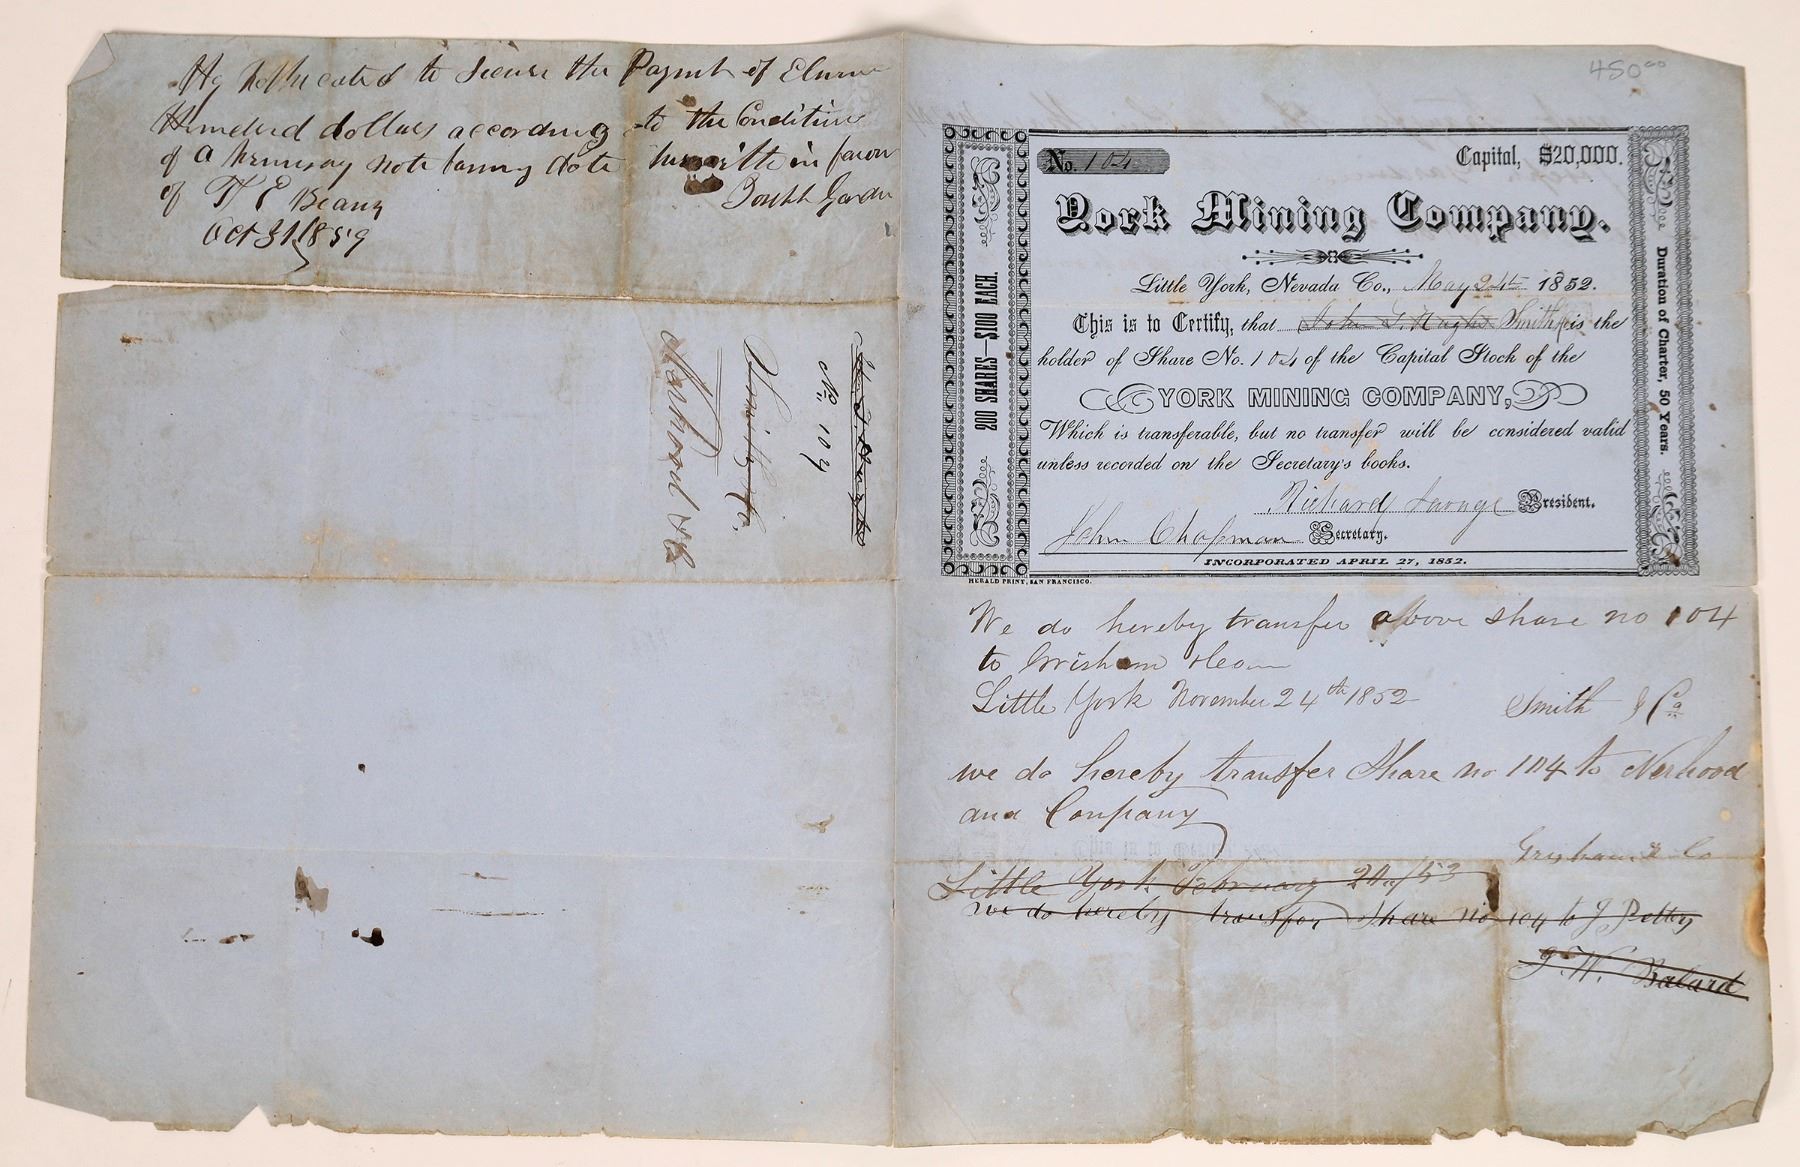 Hypothecated to secure the Payment of
Hundred dollars according to the Condition
of a note date herewith in favor
of E Beany
Oct 31 1859
No 104
Smith & Co.
Narhood & Co
450.00
No. 104
Capital, $20,000.
York Mining Company.
Little York, Nevada Co., May 24th 1852.
This is to Certify, that John Smith is the
holder of Share No. 104 of the Capital Stock of the
YORK MINING COMPANY,
Which is transferable, but no transfer will be considered valid
unless recorded on the Secretary's books.
Richard Savage President.
John Chapman Secretary.
INCORPORATED APRIL 27, 1852.
200 SHARES—$100 EACH.
Duration of Charter, 50 Years.
HERALD PRINT, SAN FRANCISCO.
We do hereby transfer above share no 104
to Grisham
Little York November 24th 1852
Smith & Co
we do hereby transfer Share no 104 to Narhood
and Company
Grisham & Co
Little York February 24/53
we do hereby transfer Share no 104 to J Pettey
J. W. Balard